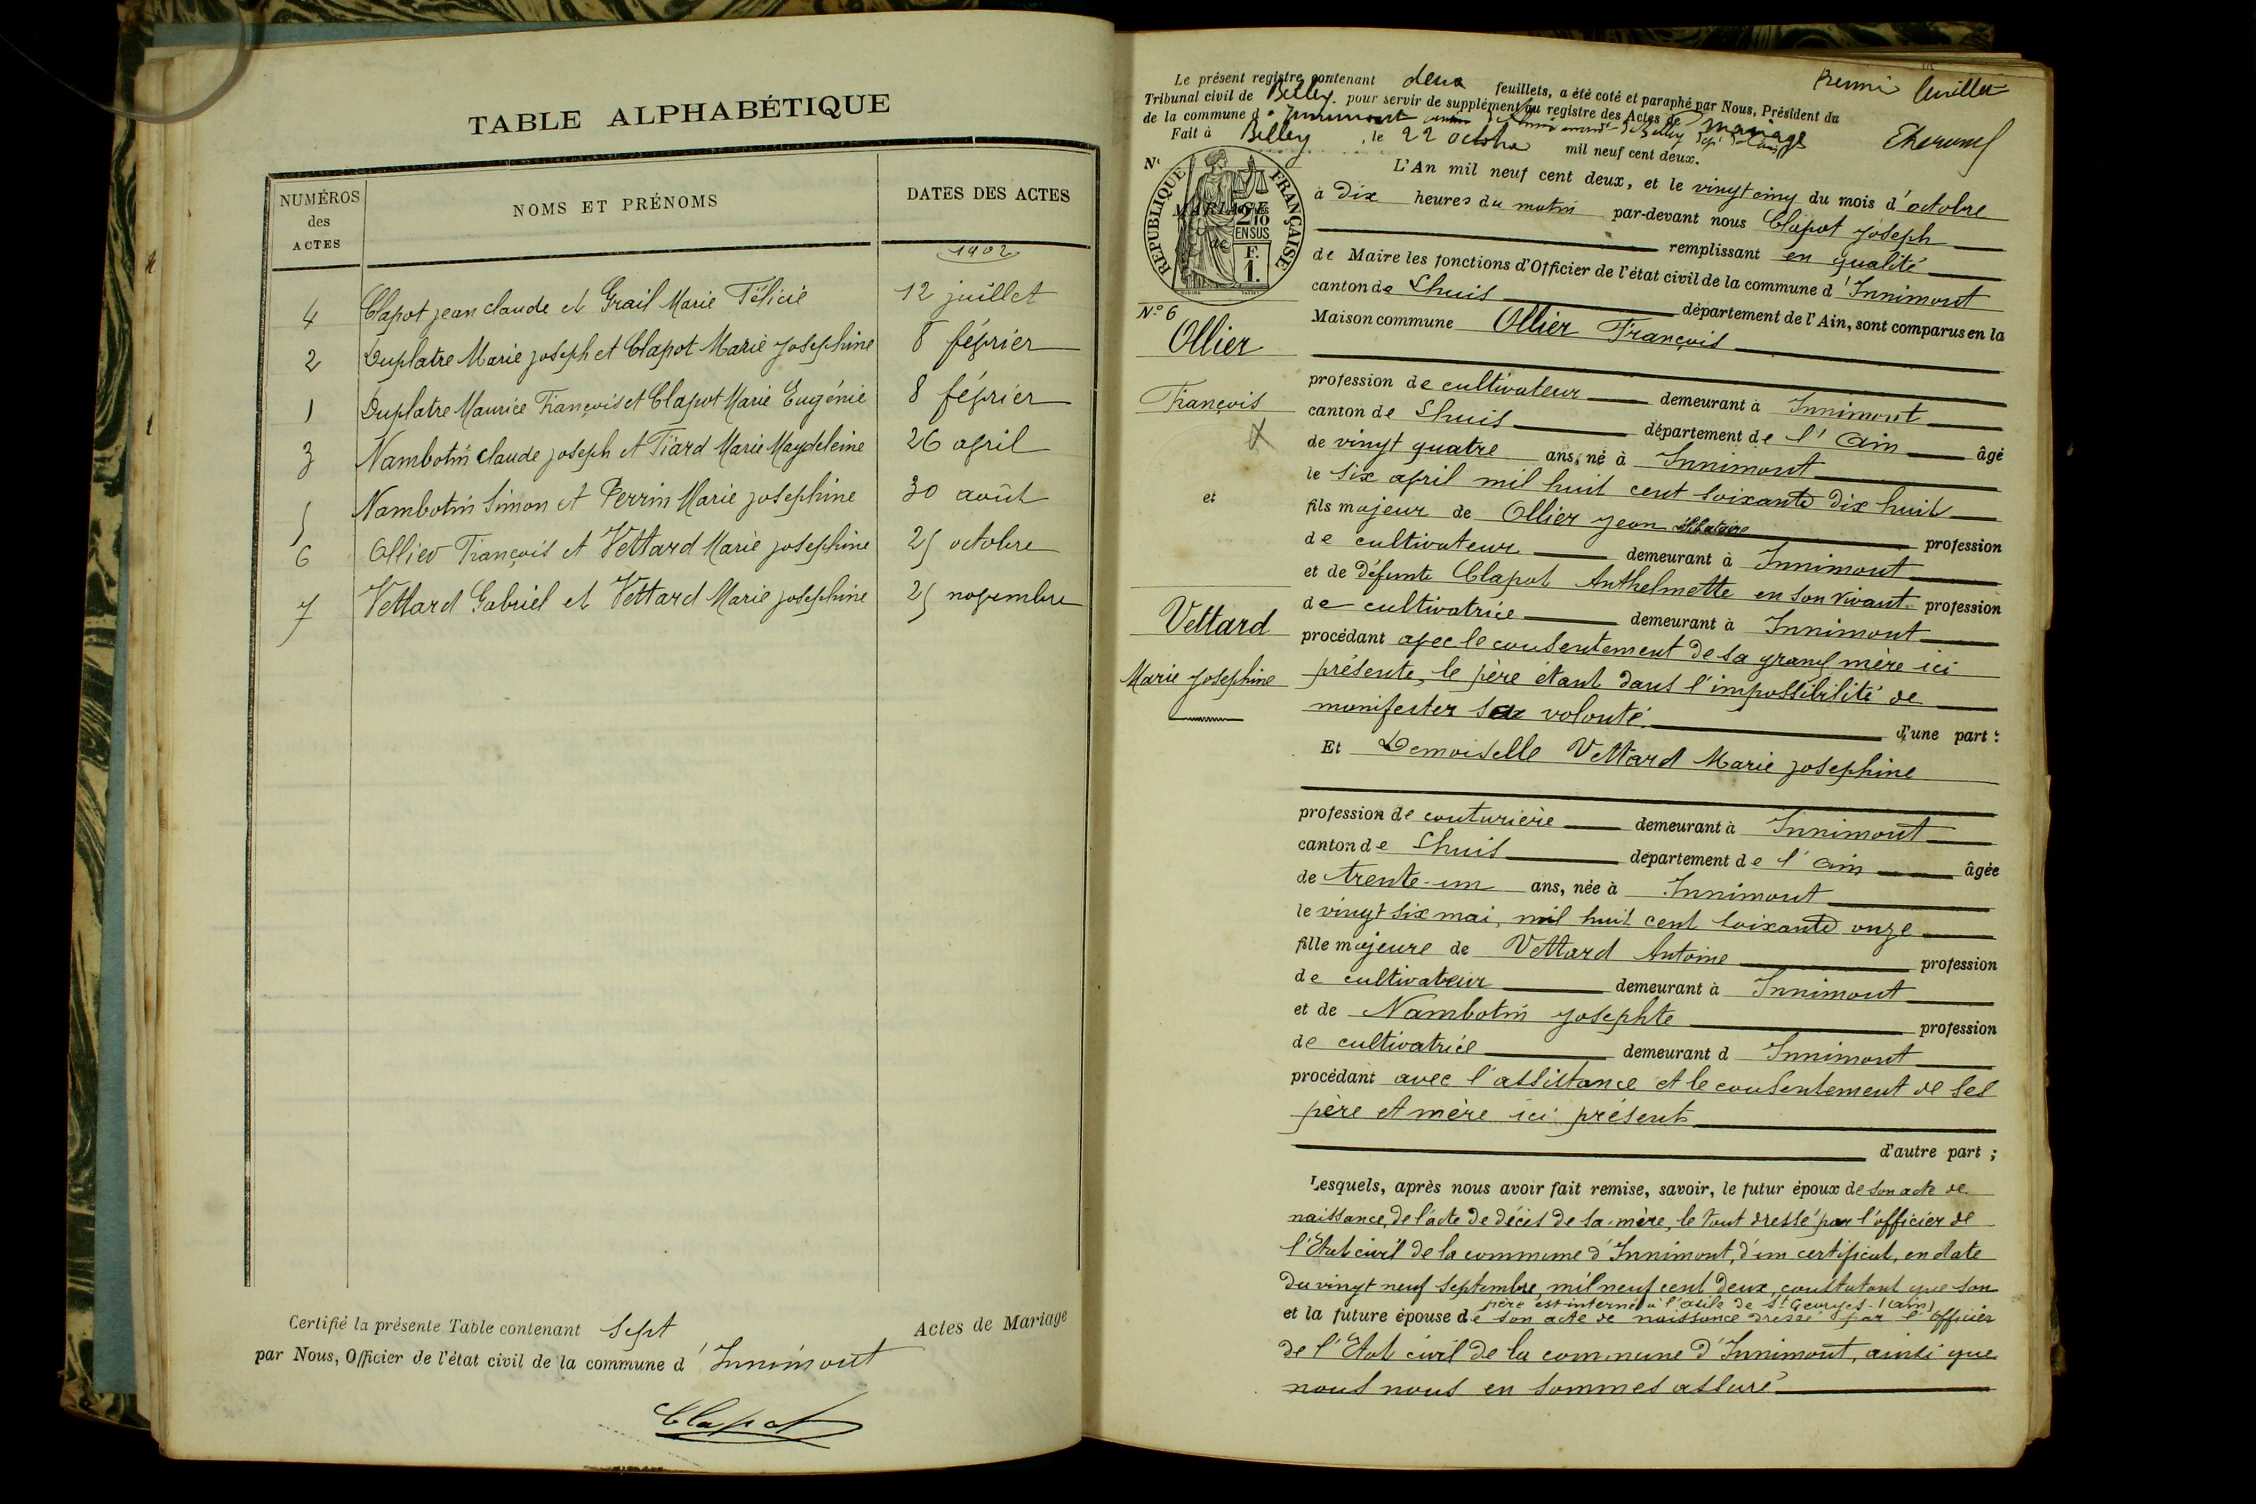 TABLE ALPHABÉTIQUE
NUMÉROS des ACTES
NOMS ET PRÉNOMS
DATES DES ACTES
1902
4 Clapot jean claude et Grail Marie Félicie 12 juillet
2 Duplatre Marie joseph et Clapot Marie josephine 8 février
1 Duplatre Maurice François et Clapot Marie Eugénie 8 février
3 Nambotin claude joseph et Tiard Marie Magdeleine 26 avril
5 Nambotin Simon et Perrin Marie josephine 30 août
6 Ollier François et Vettard Marie josephine 25 octobre
7 Vettard Gabriel et Vettard Marie josephine 25 novembre
Certifié la présente Table contenant sept Actes de Mariage
par Nous, Officier de l'état civil de la commune d'Innimont
Clapot
Le présent registre contenant deux feuillets, a été coté et paraphé par Nous, Président du
Tribunal civil de Belley pour servir de supplément au registre des Actes de Mariage
de la commune d'Innimont
Fait à Belley, le 22 octobre mil neuf cent deux.
premier feuillet
N°
RÉPUBLIQUE FRANÇAISE
MARIAGE
de
2/10 EN SUS
F. 1.
N° 6
Ollier
François
et
Vettard
Marie josephine
L'An mil neuf cent deux, et le vingt cinq du mois d'octobre
à dix heures du matin par-devant nous Clapot joseph
remplissant en qualité
de Maire les fonctions d'Officier de l'état civil de la commune d'Innimont
canton de Lhuis département de l'Ain, sont comparus en la
Maison commune Ollier François
profession de cultivateur demeurant à Innimont
canton de Lhuis département de l'Ain âgé
de vingt quatre ans, né à Innimont
le six avril mil huit cent soixante dix huit
fils majeur de Ollier jean profession
de cultivateur demeurant à Innimont
et de défunte Clapot Anthelmette en son vivant profession
de cultivatrice demeurant à Innimont
procédant avec le consentement de sa grand mère ici
présente, le père étant dans l'impossibilité de
manifester sa volonté. d'une part :
Et Demoiselle Vettard Marie josephine
profession de couturière demeurant à Innimont
canton de Lhuis département de l'ain âgée
de trente-un ans, née à Innimont
le vingt six mai, mil huit cent soixante onze
fille majeure de Vettard Antoine profession
de cultivateur demeurant à Innimont
et de Nambotin josephte profession
de cultivatrice demeurant à Innimont
procédant avec l'assistance et le consentement de ses
père et mère ici présents
d'autre part ;
Lesquels, après nous avoir fait remise, savoir, le futur époux de son acte de
naissance, de l'acte de décès de sa mère, le tout dressé par l'officier de
l'Etat civil de la commune d'Innimont, d'un certificat, en date
du vingt neuf septembre, mil neuf cent deux, constatant que son
père est interné à l'asile de St Georges (ain)
et la future épouse de son acte de naissance dressé par l'officier
de l'Etat civil de la commune d'Innimont, ainsi que
nous nous en sommes assuré